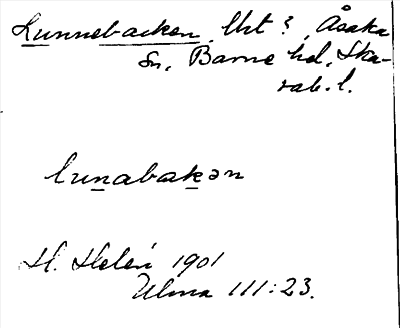 Lunnebacken, Utt? Åsaka
Sn, Barne hd, Ska-
rab. l.
lunabakən
H. Helén 1901
Ulma 111:23.